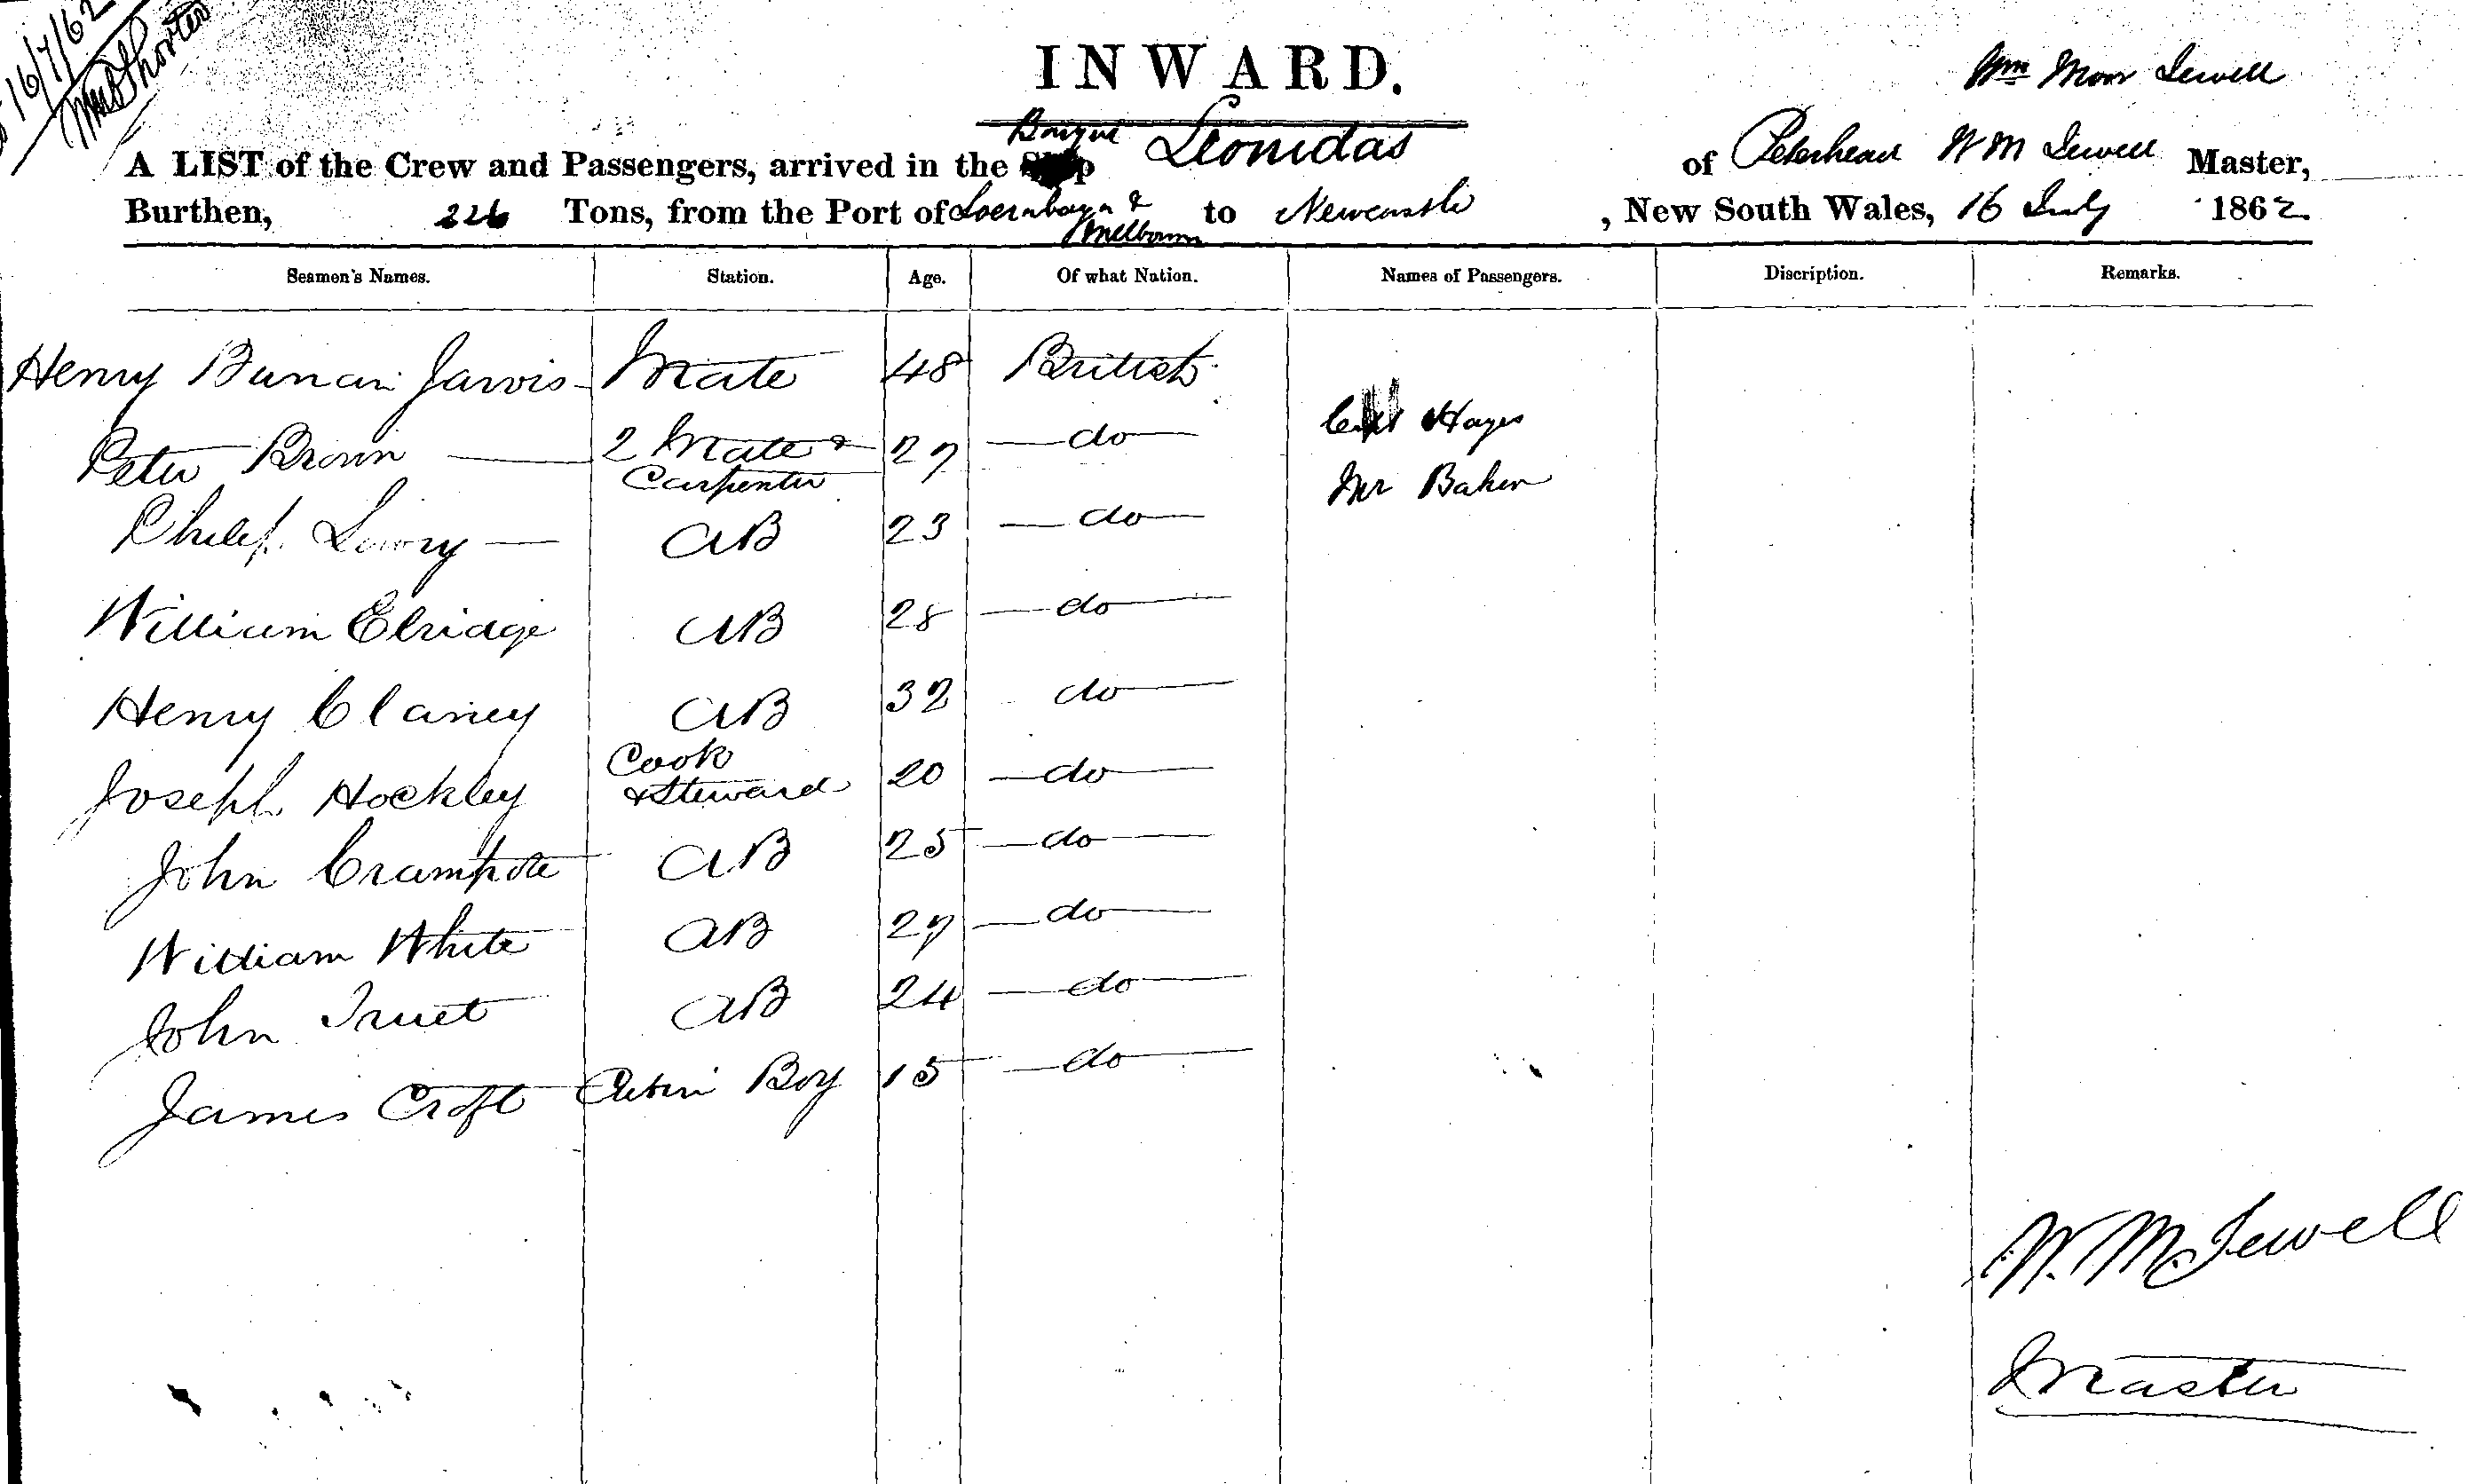 16/7/62
INWARD.
Wm Moor Jewell
A LIST of the Crew and Passengers, arrived in the Barque Leonidas of Peterhead W M Jewell Master,
Burthen, 226 Tons, from the Port of Soerabaya & Melbourn to Newcastle, New South Wales, 16 July 1862
Seamen's Names. Station. Age. Of what Nation. Names of Passengers. Discription. Remarks.
Henry Duncan Jarvis Mate 48 British
Capt Hayes
Peter Brown 2 Mate & Carpenter 27 do
Mr Baker
Philip Lowry AB 23 do
William Elridge AB 28 do
Henry Clancy AB 32 do
Joseph Hockley Cook & Steward 20 do
John AB 25 do
William White AB 27 do
John Truet AB 24 do
James Croft Cabin Boy 15 do
W. M. Jewell
Master